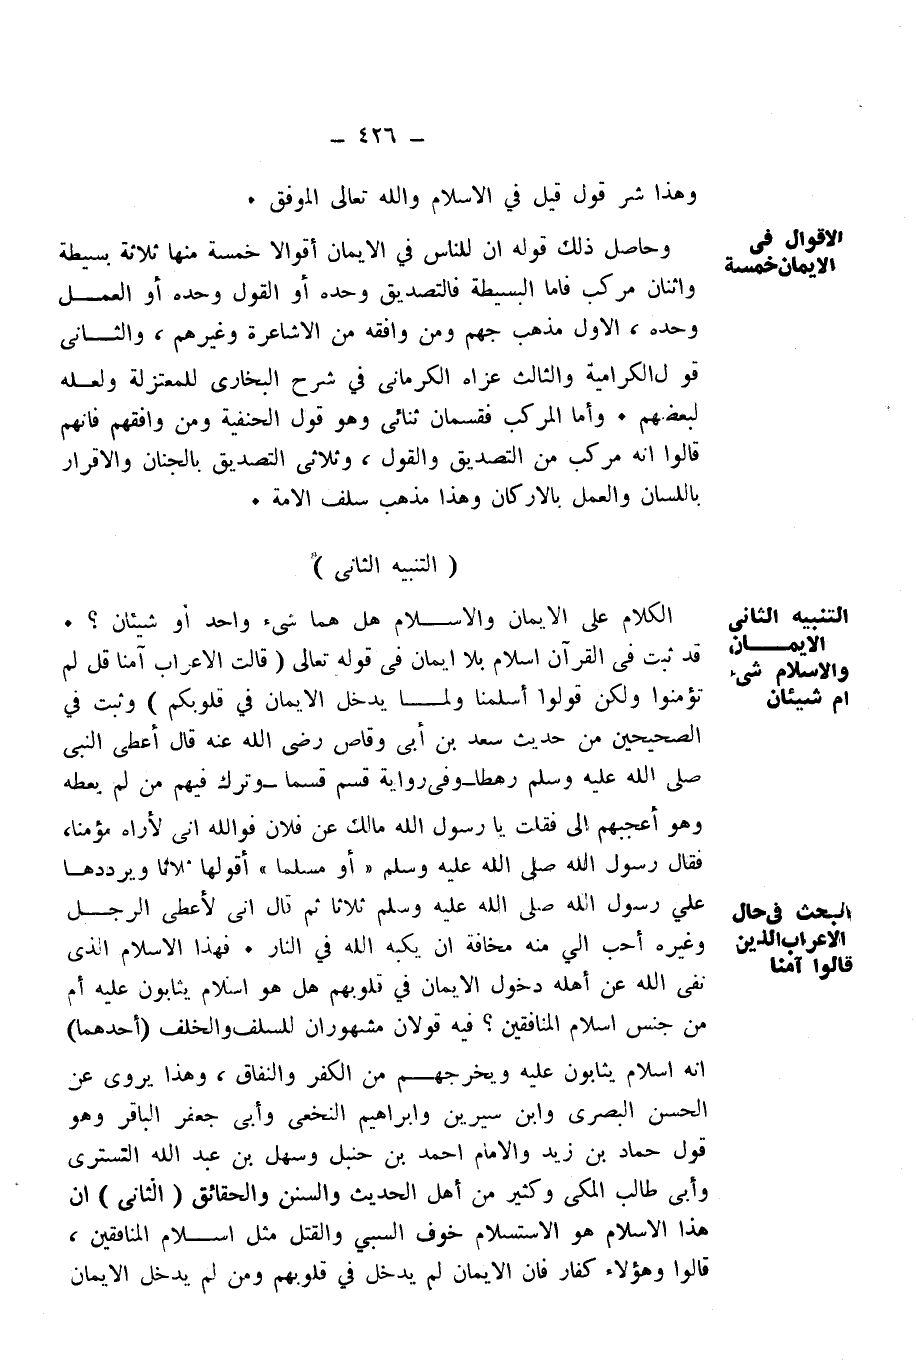 ـ ٤٢٦ ـ
وهذا شر قول قيل في الاسلام والله تعالى الموفق •
الاقوال فى
الايمان خمسة
وحاصل ذلك قوله ان للناس في الايمان أقوالا خمسة منها ثلاثة بسيطة
واثنان مركب فاما البسيطة فالتصديق وحده أو القول وحده أو العمـــل
وحده ، الاول مذهب جهم ومن وافقه من الاشاعرة وغيرهم ، والثـــانى
قو ل الكرامية والثالث عزاه الكرمانى في شرح البخارى للمعتزلة ولعـله
لبعضهم • وأما المركب فقسمان ثنائى وهو قول الحنفية ومن وافقهم فانهم
قالوا انه مركب من التصديق والقول ، وثلاثى التصديق بالجنان والاقرار
باللسان والعمل بالاركان وهذا مذهب سلف الامة •
( التنبيه الثانى )
التنبيه الثانى
الايمـــــان
والاسلام شىء
ام شيئان
الكلام على الايمان والاســــلام هل هما شىء واحد أو شيئان ؟ •
قد ثبت فى القرآن اسلام بلا ايمان فى قوله تعالى ( قالت الاعراب آمنا قل لم
تؤمنوا ولكن قولوا أسلمنا ولمـــا يدخل الايمان في قلوبكم ) وثبت في
الصحيحين من حديث سعد بن أبى وقاص رضى الله عنه قال أعطى النبى
صلى الله عليه وسلم رهطا ـ وفى رواية قسم قسما ـ وترك فيهم من لم يعطه
وهو أعجبهم الى فقلت يا رسول الله مالك عن فلان فوالله انى لأراه مؤمنا،
فقال رسول الله صلى الله عليه وسلم « أو مسلما » أقولها ثلاثا ويرددهـا
علي رسول الله صلى الله عليه وسلم ثلاثا ثم قال انى لأعطى الرجـــل
وغيره أحب الي منه مخافة ان يكبه الله في النار • فهذا الاسلام الذى
نفى الله عن أهله دخول الايمان في قلوبهم هل هو اسلام يثابون عليه أم
من جنس اسلام المنافقين ؟ فيه قولان مشهوران للسلف والخلف (أحدهما)
البحث فى حال
الاعراب الذين
قالوا آمنا
انه اسلام يثابون عليه ويخرجهـــم من الكفر والنفاق ، وهذا يروى عن
الحسن البصرى وابن سيرين وابراهيم النخعى وأبى جعفر الباقر وهو
قول حماد بن زيد والامام احمد بن حنبل وسهل بن عبد الله التسترى
وأبى طالب المكى وكثير من أهل الحديث والسنن والحقائق ( الثانى ) ان
هذا الاسلام هو الاستسلام خوف السبي والقتل مثل اســـلام المنافقين ،
قالوا وهؤلاء كفار فان الايمان لم يدخل في قلوبهم ومن لم يدخل الايمان